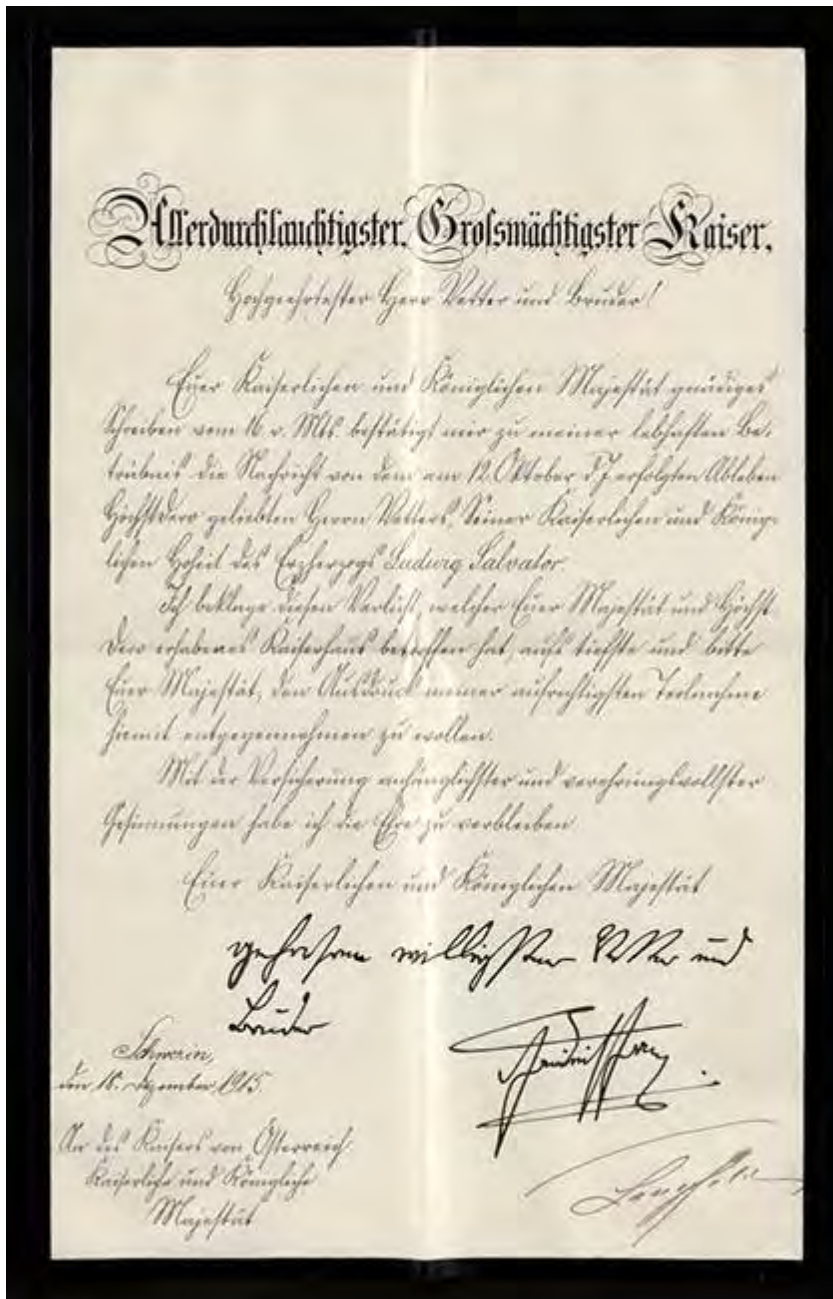 Allerdurchlauchtigster, Grossmächtigster Kaiser,
Hochgeehrtester Herr Vetter und Bruder!
Euer Kaiserlichen und Königlichen Majestät gnädiges
Schreiben vom 16. v. Mts. bestätigt mir zu meiner lebhaften Be-
trübnis die Nachricht von dem am 12. Oktober d. J. erfolgten Ableben
Höchstdero geliebten Herrn Vetters, Seiner Kaiserlichen und König-
lichen Hoheit des Erzherzogs Ludwig Salvator.
Ich beklage diesen Verlust, welcher Euer Majestät und Höchst-
dero erhabenes Kaiserhaus betroffen hat, aufs tiefste und bitte
Euer Majestät, den Ausdruck meiner aufrichtigsten Teilnahme
hiemit entgegennehmen zu wollen.
Mit der Versicherung anhänglichster und verehrungsvollster
Gesinnungen habe ich die Ehre zu verbleiben
Euer Kaiserlichen und Königlichen Majestät
gehorsam willigster Vetter und
Bruder
Schwerin,
den 18. Dezember 1915.
An des Kaisers von Österreich
Kaiserliche und Königliche
Majestät